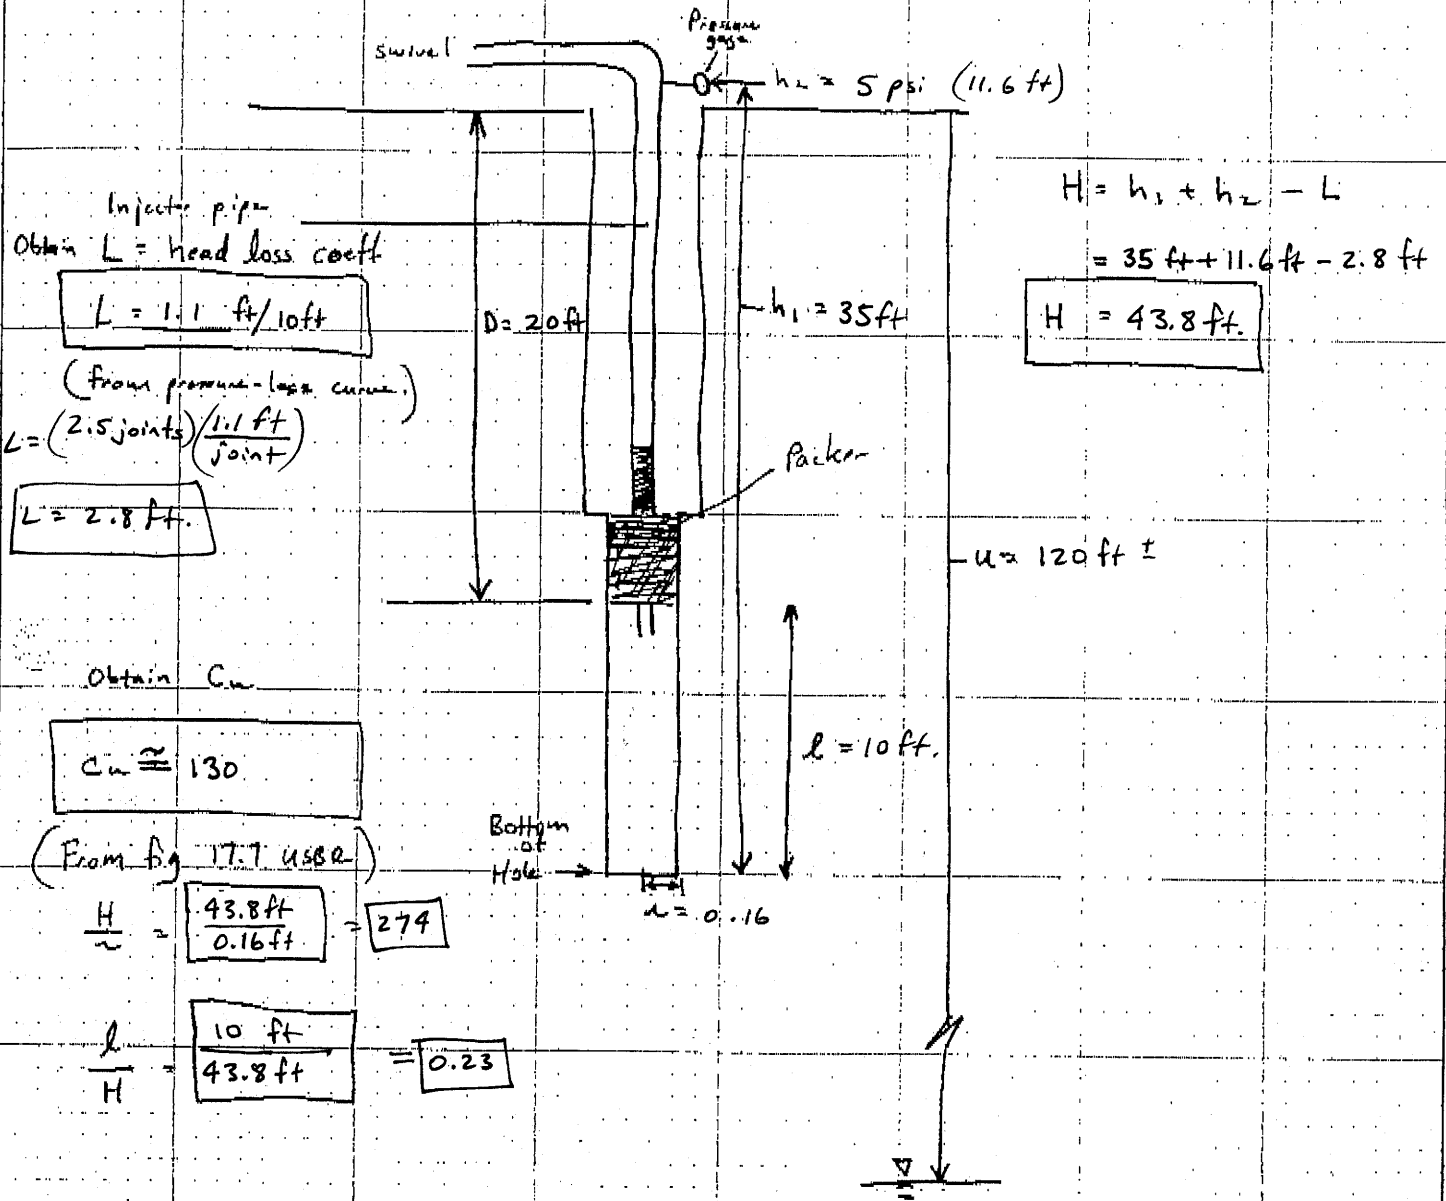 Pressure
gage
swivel
h₂ = 5 psi (11.6 ft)
Injector pipe
Obtain L = head loss coeff
L = 1.1 ft/10ft
(from pressure-loss curve.)
L = (2.5 joints) (1.1 ft / joint)
L = 2.8 ft.
D = 20 ft
h₁ = 35 ft
H = h₁ + h₂ - L
= 35 ft + 11.6 ft - 2.8 ft
H = 43.8 ft.
Packer
u = 120 ft ±
Obtain Cu
Cu ≅ 130
(From fig 17.7 USBR)
l = 10 ft.
Bottom
of
Hole
r = 0.16
H / r = 43.8 ft / 0.16 ft = 274
l / H = 10 ft / 43.8 ft = 0.23